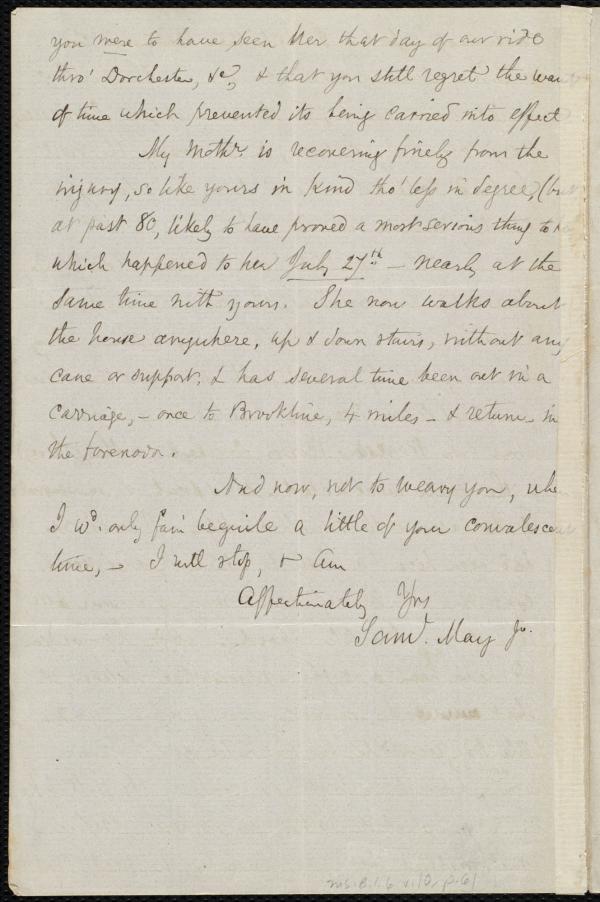 you were to have seen her that day of our ride
thro' Dorchester, &c, & that you still regret the wan
of time which prevented its being carried into effect
My mother is recovering finely from the
injury, so like yours in kind tho' less in degree, (but
at past 80, likely to have proved a most serious thing to h
which happened to her July 27th – nearly at the
same time with yours. She now walks about
the house anywhere, up & down stairs, without any
cane or support, & has several time been out in a
carriage, – once to Brookline, 4 miles – & return – in
the forenoon.
And now, not to weary you, whe
I wd. only fain beguile a little of your convalescent
time, – I will stop, & am
Affectionately Yrs
Saml. May Jr.